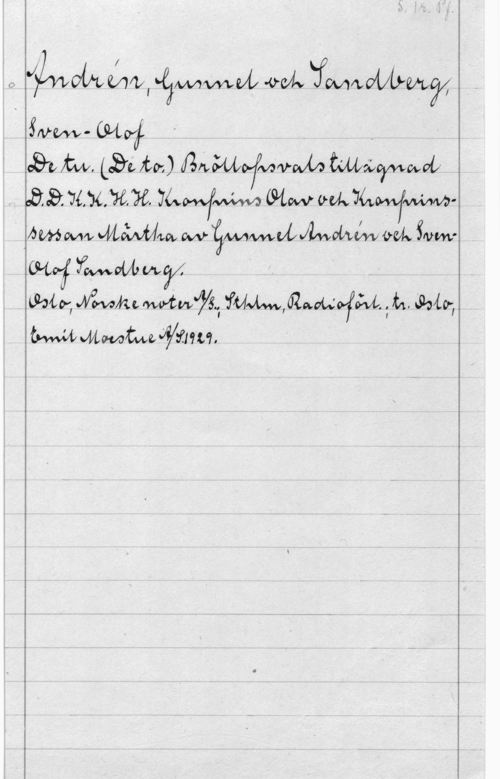 Andrén, Gunnel och Sandberg,
Sven-Olof
De tu. (De to.) Bröllopsvals tillägnad
D.D. K.K. H.H. Kronprins Olav och Kronprins-
sessan Märtha av Gunnel Andrén och Sven-
Olof Sandberg.
Oslo, Norske noter A/S.; Sthlm, Radioförl.; tr. Oslo,
Emil Moestue A/S 1929.